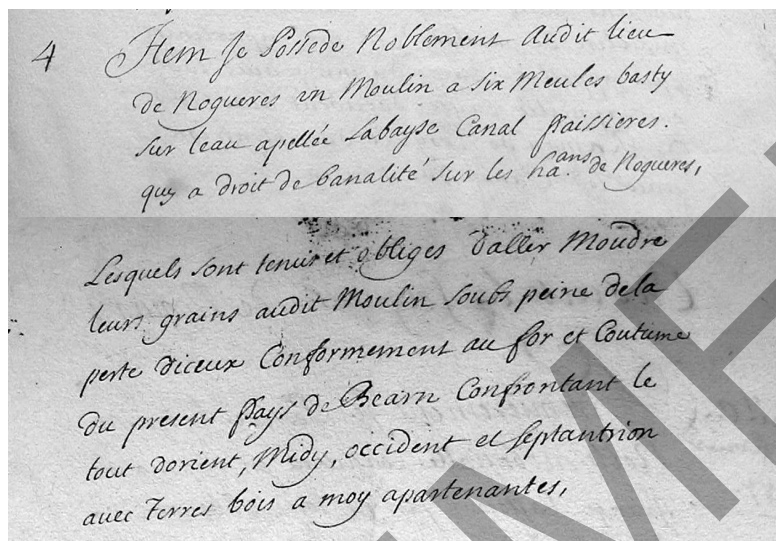 4 Item Je Possede Noblement audit lieu
de Nogueres un Moulin a six Meules basty
sur leau apellée Labayse Canal paissieres.
quy a droit de banalité sur les ha.ans de Nogueres,
Lesquels sont tenus et obliges daller Moudre
leurs grains audit Moulin soubs peine dela
perte diceux Conformement au for et Coutume
du present pays de Bearn Confrontant le
tout dorient, Midy, occident et septantrion
avec terres bois a moy apartenantes,